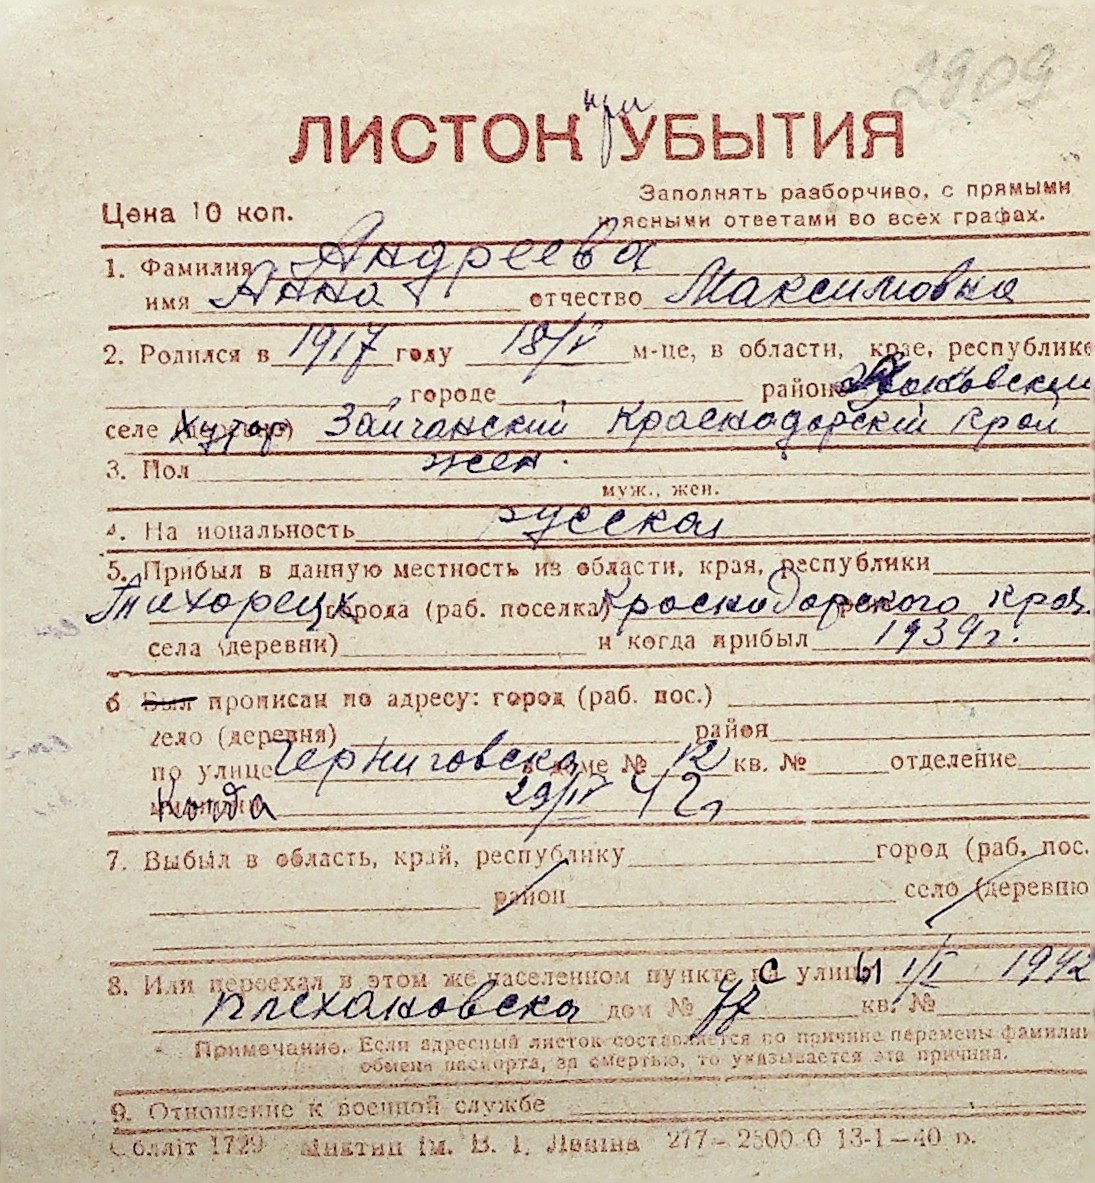 2909
при
ЛИСТОК УБЫТИЯ
Цена 10 коп.
Заполнять разборчиво, с прямыми
и ясными ответами во всех графах.
1. Фамилия Андреева
имя Анна отчество Максимовна
2. Родился в 1917 году 18/V м-це, в области, крае, республике
городе районе
селе Хутор Зайчанский Краснодарский край
3. Пол жен.
муж., жен.
4. Национальность русская
5. Прибыл в данную местность из области, края, республики
Тихорецк города (раб. поселка) Краснодарского края
села (деревни) и когда прибыл 1939 г.
6 Был прописан по адресу: город (раб. пос.)
село (деревня) район
по улице Черниговска в доме № 12 кв. № отделение
Когда 29/IV 42 г
7. Выбыл в область, край, республику город (раб. пос.
район село (деревню
8. Или переехал в этом же населенном пункте с улицы 1/I 1942
Плехановска дом № 77 кв. №
Примечание. Если адресный листок составляется по причине перемены фамилии
обмена паспорта, за смертью, то указывается эта причина.
9. Отношение к военной службе
Обллiт 1729 iм. В. I. Ленiна 277—2500 0 13-1—40 р.